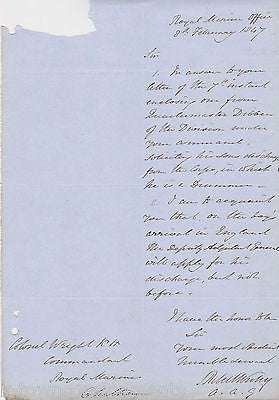 Royal Marine Office
8th February 1847
Sir
1. In answer to your
letter of the 7th instant
enclosing one from
Quartermaster Dibben
of the Division under
your command,
soliciting his sons discharge
from the Corps, in which
he is a Drummer -
2. I am to acquaint
you that, on the boys
arrival in England
the Deputy Adjutant General
will apply for his
discharge, but not
before.
I have the honor to be
Sir
Your most Obedient
Humble Servant
A.A.G
Colonel Wright K.H.
Commandant
Royal Marines